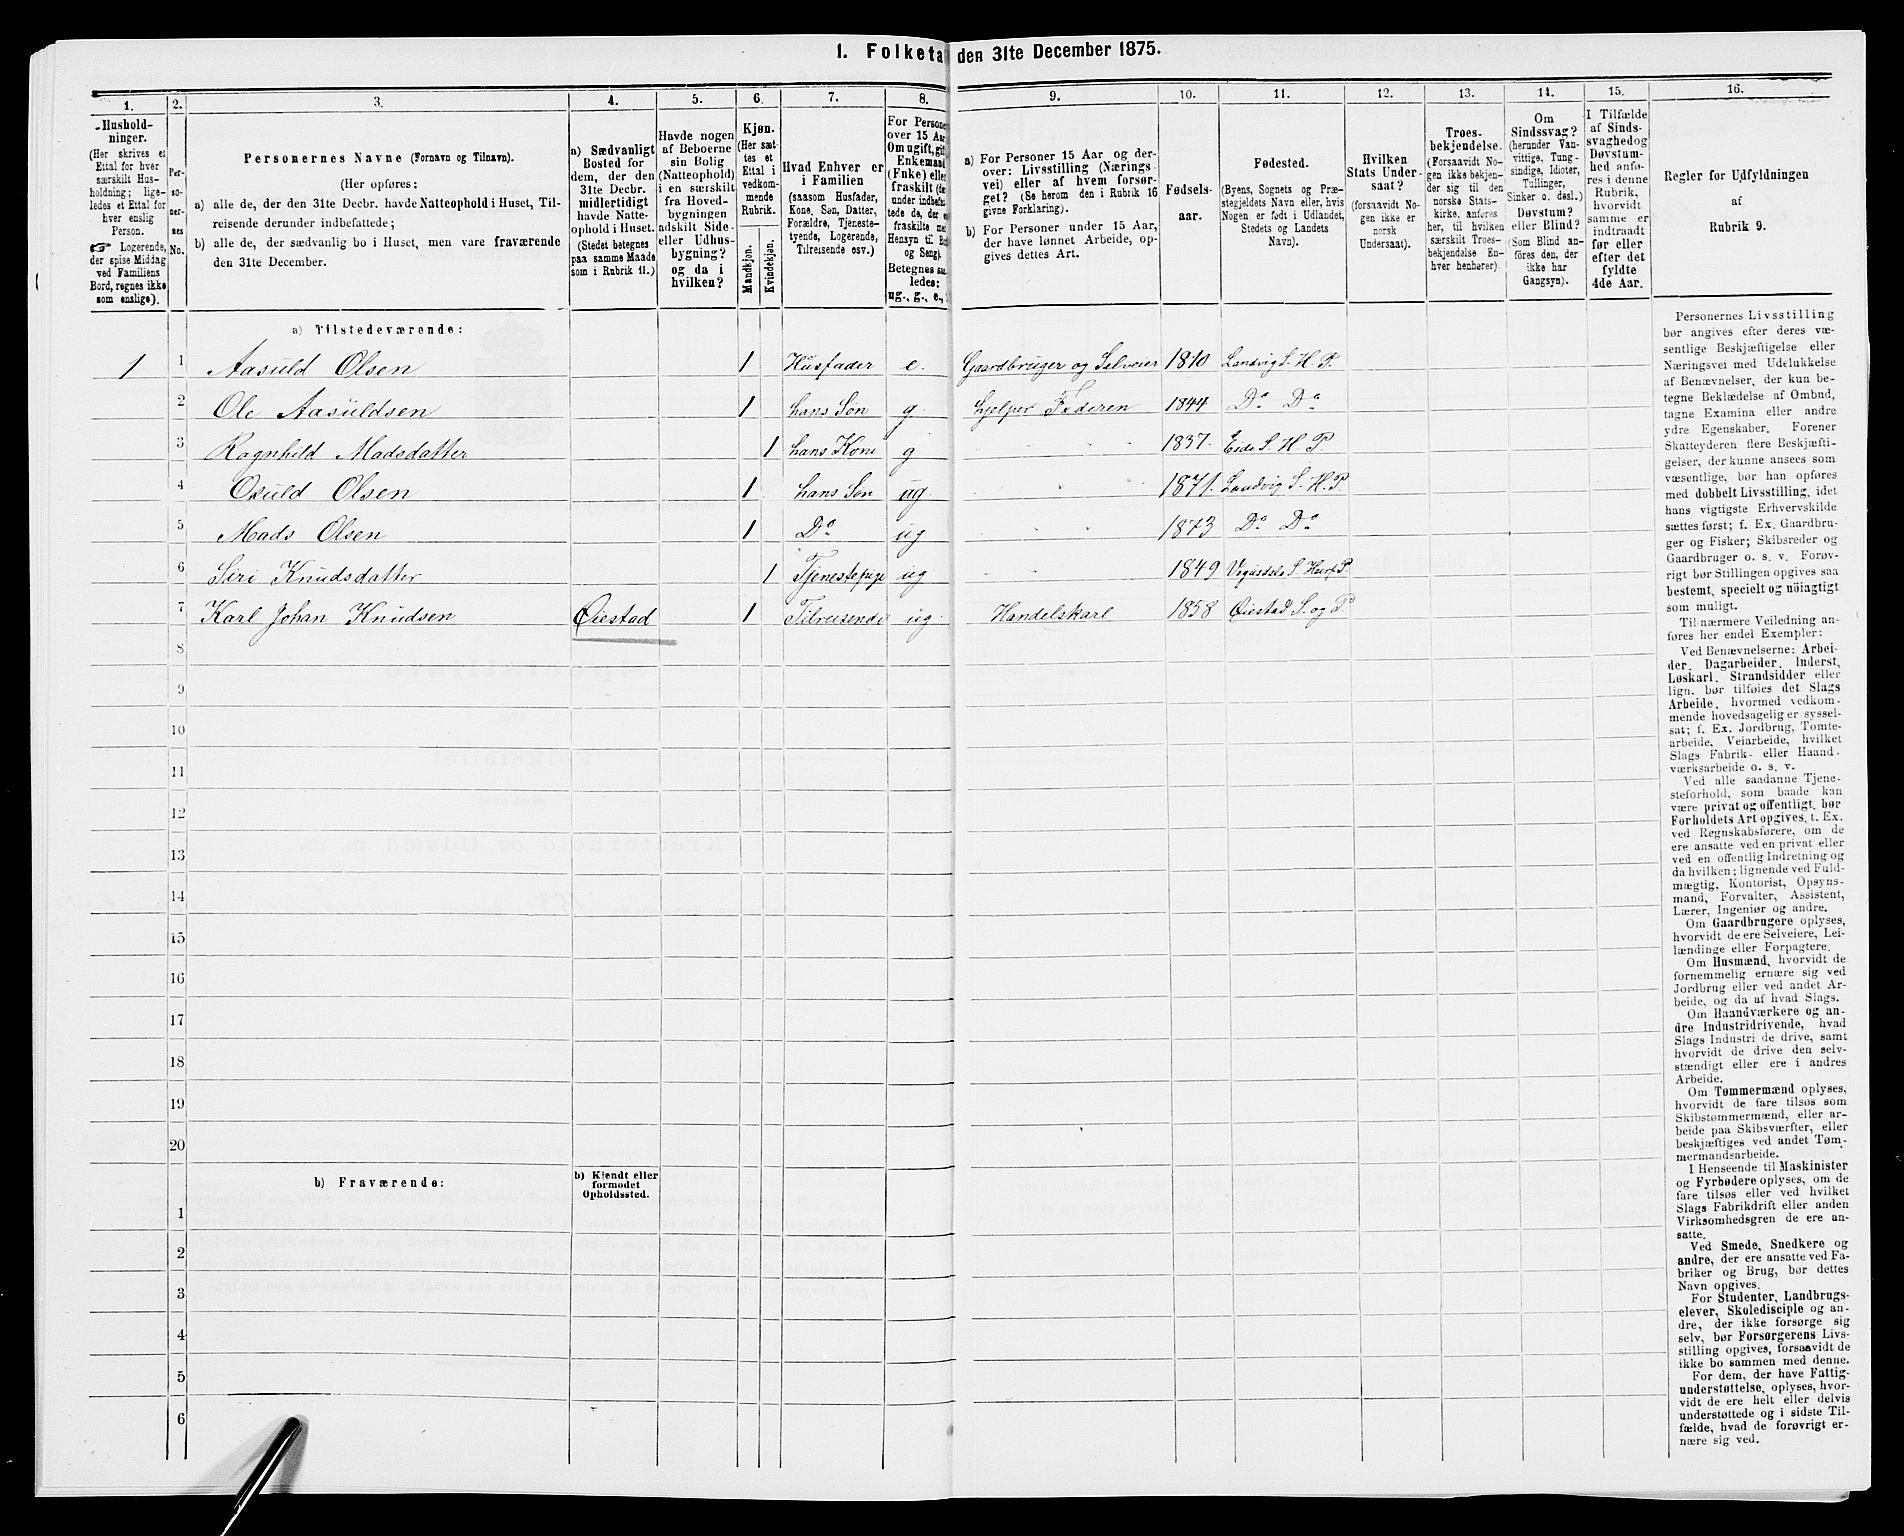 1. Folketa den 31te December 1875.
1. 2. 3. 4. 5. 6. 7. 8. 9. 10. 11. 12. 13. 14. 15. 16.
Hushold-
ninger.
(Her skrives et
Ettal for hver
særskilt Hus-
holdning; lige-
ledes et Ettal for
hver enslig
Person.
☞ Logerende,
der spise Middag
ved Familiens
Bord, regnes ikke
som enslige).
Per-
so-
ner-
nes
No.
Personernes Navne (Fornavn og Tilnavn).
(Her opføres:
a) alle de, der den 31te Decbr. havde Natteophold i Huset, Til-
reisende derunder indbefattede;
b) alle de, der sædvanlig bo i Huset, men vare fraværende
den 31te December.
a) Sædvanligt
Bosted for
dem, der den
31te Decbr.
midlertidigt
havde Natte-
ophold i Huset.
(Stedet betegnes
paa samme Maade
som i Rubrik 11.)
Havde nogen
af Beboerne
sin Bolig
(Natteophold)
i en særskilt
fra Hoved-
bygningen
adskilt Side-
eller Udhus-
bygning?
og da i
hvilken?
Kjøn.
(Her sæt-
tes et
Ettal i
vedkom-
mende
Rubrik.
Mandkjøn.
Kvindekjøn.
Hvad Enhver er
i Familien
(saasom Husfader,
Kone, Søn, Datter,
Forældre, Tjeneste-
tyende, Logerende,
Tilreisende osv.)
For Persone
over 15 Aar
Om ugift, gift
Enkemand
(Enke) elle
fraskilt
Betegnes saa
ledes:
ug., g., e.,
a) For Personer 15 Aar og der-
over: Livsstilling (Nærings-
vei) eller af hvem forsør-
get? (Se herom den i Rubrik 16
givne Forklaring).
b) For Personer under 15 Aar,
der have lønnet Arbeide, op-
gives dettes Art.
Fødsels-
aar.
Fødested.
(Byens, Sognets og Præ-
stegjeldets Navn eller, hvis
Nogen er født i Udlandet,
Stedets og Landets
Navn).
Hvilken
Stats Under-
saat?
(forsaavidt No-
gen ikke er
norsk
Undersaat).
Troes-
bekjendelse.
(Forsaavidt No-
gen ikke bekjen-
der sig til den
norske Stats-
kirke, anføres
her, til hvilken
særskilt Troes-
bekjendelse En-
hver henhører).
Om
Sindssvag?
(herunder Van-
vittige, Tung-
sindige, Idioter,
Tullinger,
Sinker o. desl.)
Døvstum?
eller Blind?
(Som Blind an-
føres den, der
ikke har
Gangsyn).
I Tilfælde
af Sinds-
svaghed og
Døvstum-
hed anfø-
res i denne
Rubrik,
hvorvidt
samme er
indtraadt
før eller
efter det
fyldte
4de Aar.
Regler for Udfyldningen
af
Rubrik 9.
a) Tilstedeværende:
1 1 Aasuld Olsen 1 Husfader e. Gaardbruger og Selveier 1810 Landvig S. H. P.
2 Ole Aasuldsen 1 hans Søn g. hjelper Faderen 1844 Do Do
3 Ragnhild Madsdatter 1 hans Kone g 1837. Eide S. H. P.
4 Osuld Olsen 1 hans Søn ug. 1871. Landvig S. H. P.
5 Mads Olsen 1 Do ug 1873 Do Do
6 Siri Knudsdatter 1 Tjenestepige ug 1849
7 Karl Johan Knudsen Øiestad 1 Tilreisende ug. Handelskarl 1858 Øiestad S. og P
8
9
10
11
12
13
14
15
16
17
18
19
20
b) Fraværende:
b) Kjendt eller
formodet
Opholdssted.
1
2
3
4
5
6
Personernes Livsstilling
bør angives efter deres væ-
sentlige Beskjæftigelse eller
Næringsvei med Udelukkelse
af Benævnelser, der kun be-
tegne Beklædelse af Ombud,
tagne Examina eller andre
ydre Egenskaber. Forener
Skatteyderen flere Beskjæfti-
gelser, der kunne ansees som
væsentlige, bør han opføres
med dobbelt Livsstilling, idet
hans vigtigste Erhvervskilde
sættes først; f. Ex. Gaardbru-
ger og Fisker; Skibsreder og
Gaardbruger o. s. v. Forøv-
rigt bør Stillingen opgives saa
bestemt, specielt og nöiagtigt
som muligt.
Til nærmere Veiledning an-
føres her endel Exempler:
Ved Benævnelserne: Arbei-
der, Dagarbeider, Inderst,
Løskarl, Strandsidder eller
lign. bør tilføies det Slags
Arbeide, hvormed vedkom-
mende hovedsagelig er syssel-
sat; f. Ex. Jordbrug, Tomte-
arbeide, Veiarbeide, hvilket
Slags Fabrik- eller Haand-
værksarbeide o. s. v.
Ved alle saadanne Tjene-
steforhold, som baade kan
være privat og offentligt, bør
Forholdets Art opgives, t. Ex.
ved Regnskabsførere, om de
ere ansatte ved en privat eller
ved en offentlig Indretning og
da hvilken; lignende ved Fuld-
mægtig, Kontorist, Opsyns-
mand, Forvalter, Assistent,
Lærer, Ingeniør og andre.
Om Gaardbrugere oplyses,
hvorvidt de ere Selveiere, Lei-
lændinge eller Forpagtere.
Om Husmænd, hvorvidt de
fornemmelig ernære sig ved
Jordbrug eller ved andet Ar-
beide, og da af hvad Slags.
Om Haandværkere og an-
dre Industridrivende, hvad
Slags Industri de drive, samt
hvorvidt de drive den selv-
stændigt eller ere i andres
Arbeide.
Om Tømmermænd oplyses,
hvorvidt de fare tilsøs som
Skibstømmermænd, eller ar-
beide paa Skibsværfter, eller
beskjæftiges ved andet Tøm-
mermandsarbeide.
I Henseende til Maskinister
og Fyrbødere oplyses, om de
fare tilsøs eller ved hvilket
Slags Fabrikdrift eller anden
Virksomhedsgren de ere an-
satte.
Ved Smede, Snedkere og
andre, der ere ansatte ved Fa-
briker og Brug, bør dettes
Navn opgives.
For Studenter, Landbrugs-
elever, Skoledisciple og an-
dre, der ikke forsørge sig
selv, bør Forsørgerens Livs-
stilling opgives, forsaavidt de
ikke bo sammen med denne.
For dem, der have Fattig-
understøttelse, oplyses, hvor-
vidt de ere helt eller delvis
understøttede og i sidste Til-
fælde, hvad de forøvrigt er-
nære sig ved.